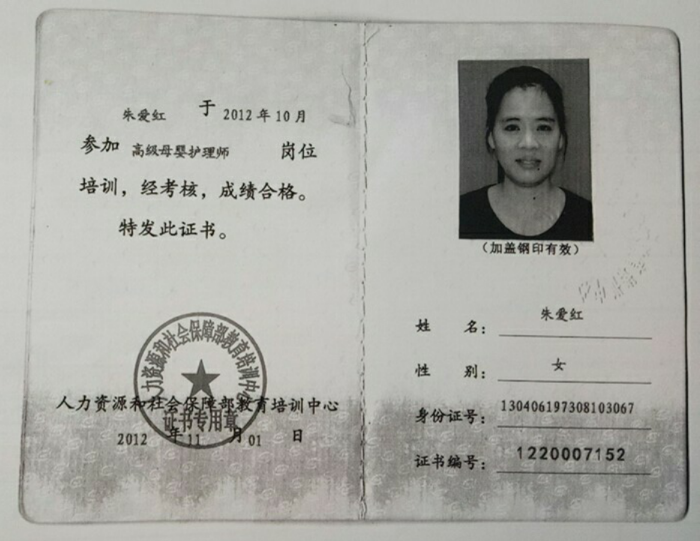 朱爱红 于 2012年10月
参加 高级母婴护理师 岗位
培训，经考核，成绩合格。
特发此证书。
人力资源和社会保障部教育培训中心
证书专用章
人力资源和社会保障部教育培训中心
2012 年 11 月 01 日
（加盖钢印有效）
姓 名： 朱爱红
性 别： 女
身份证号： 130406197308103067
证书编号： 1220007152